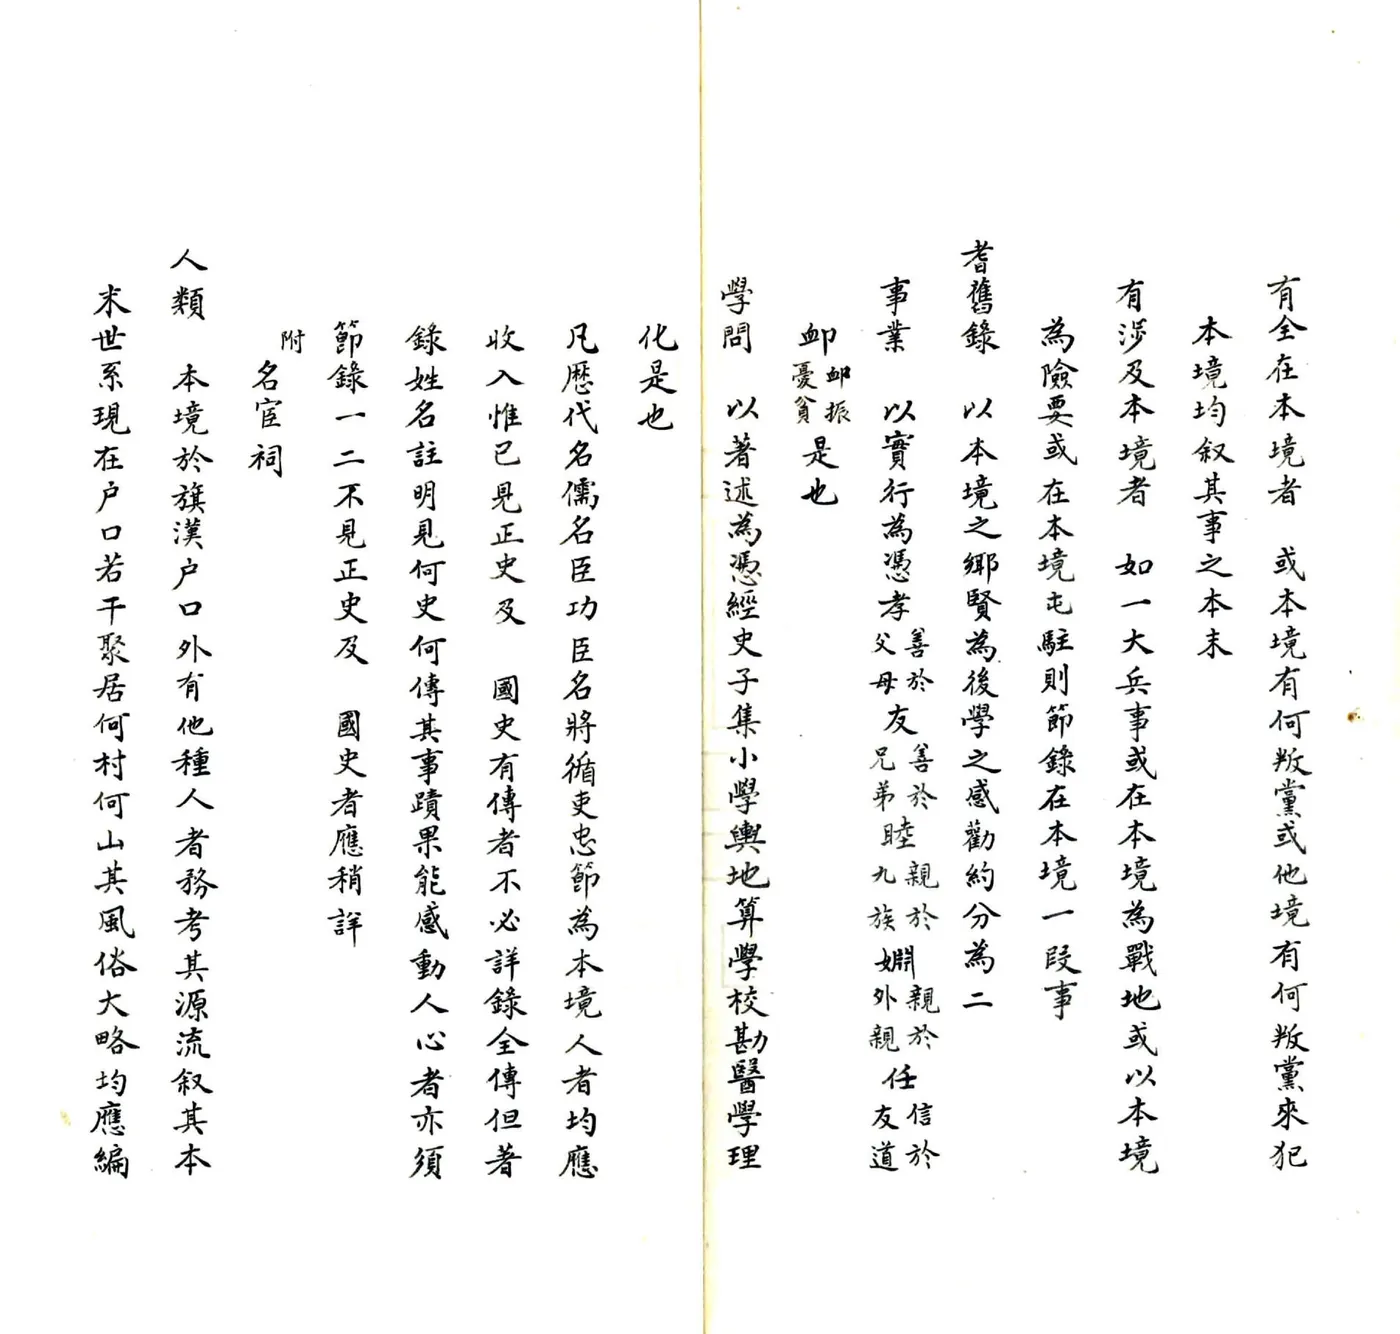 有全在本境者　或本境有何叛黨或他境有何叛黨來犯
本境均叙其事之本末
有涉及本境者　如一大兵事或在本境為戰地或以本境
為險要或在本境屯駐則節錄在本境一段事
耆舊錄　以本境之鄉賢為後學之感勸約分為二
事業　以實行為憑孝善於父母友善於兄弟睦親於九族婣親於外親任信於友道
卹卹振憂貧是也
學問　以著述為憑經史子集小學輿地算學校勘醫學理
化是也
凡歷代名儒名臣功臣名將循吏忠節為本境人者均應
收入惟已見正史及　國史有傳者不必詳錄全傳但著
錄姓名註明見何史何傳其事蹟果能感動人心者亦須
節錄一二不見正史及　國史者應稍詳
附名宦祠
人類　本境於旗漢户口外有他種人者務考其源流叙其本
末世系現在户口若干聚居何村何山其風俗大略均應編